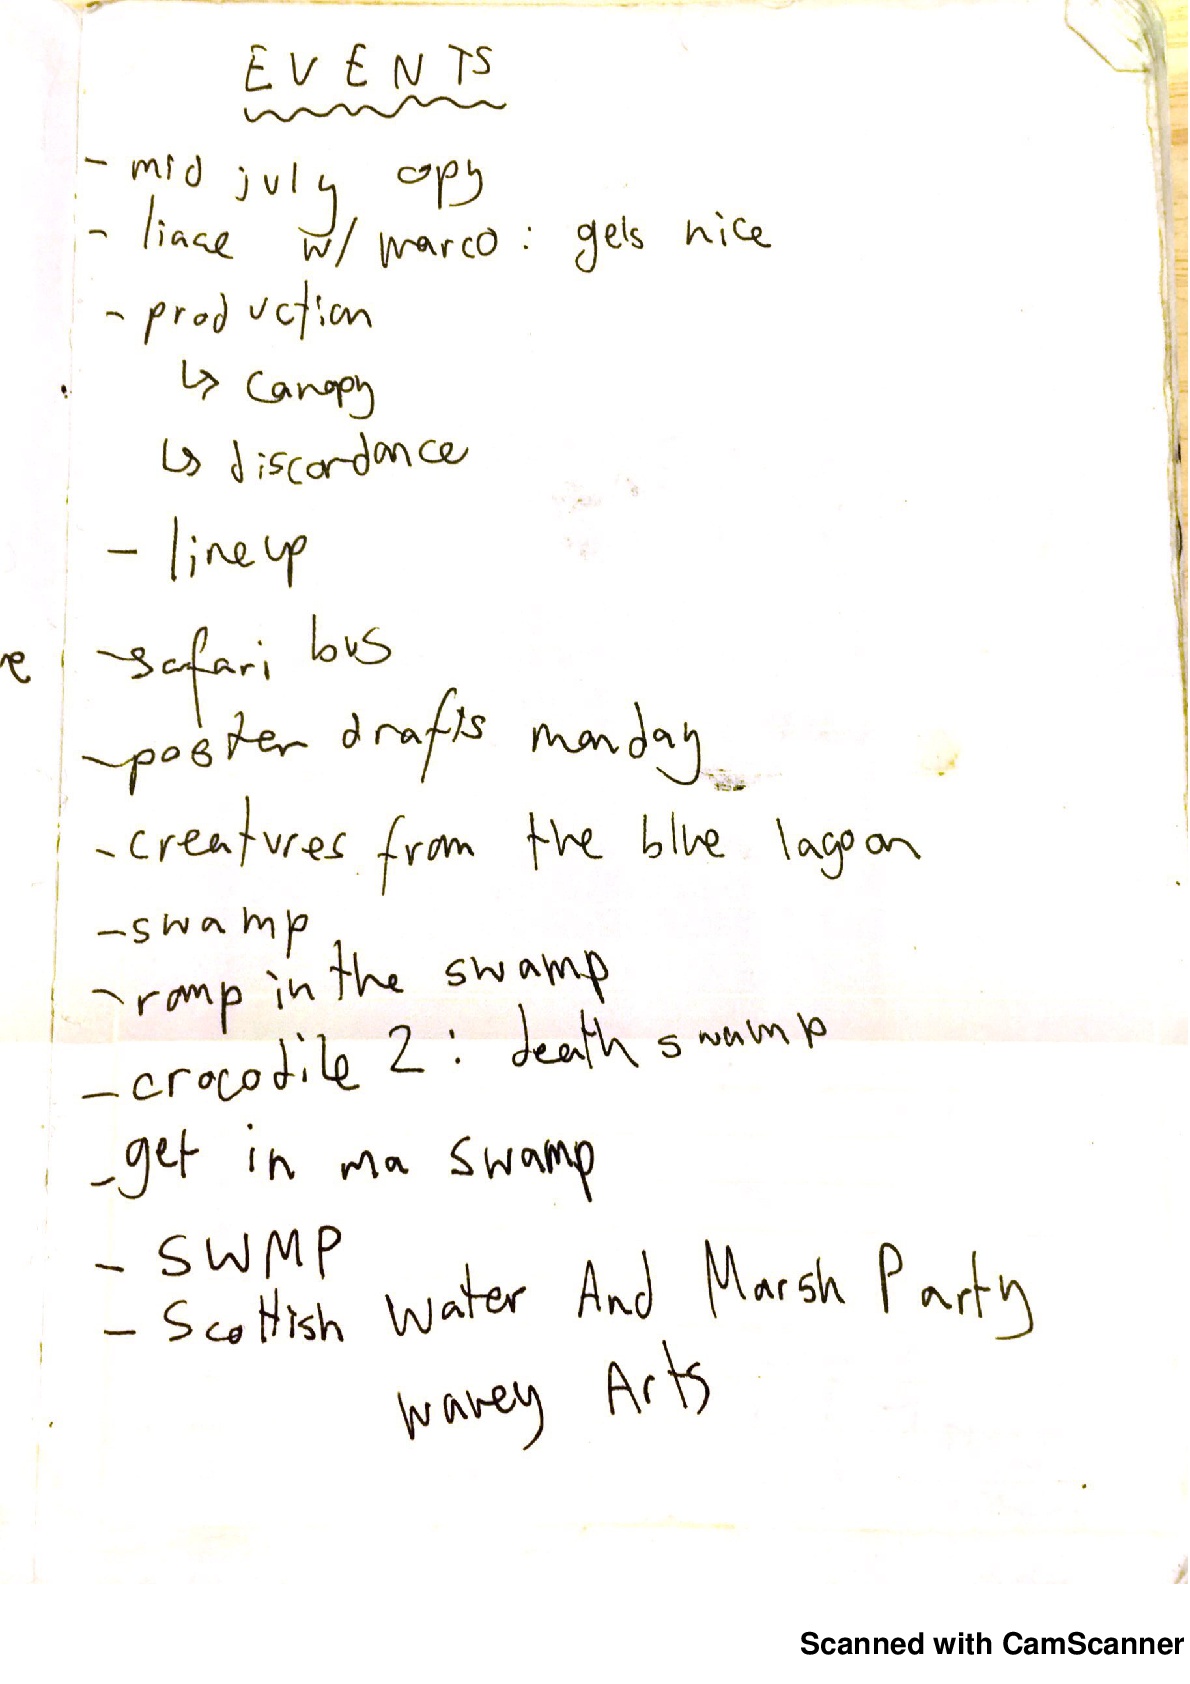 EVENTS
- mid july opy
- liase w/ marco: gets nice
- production
↳ canopy
↳ discordance
- lineup
- safari bus
- poster drafts monday
- creatures from the blue lagoon
- swamp
- romp in the swamp
- crocodile 2: death swamp
- get in ma swamp
- SWMP
- Scottish Water And Marsh Party
wavey Arts
Scanned with CamScanner